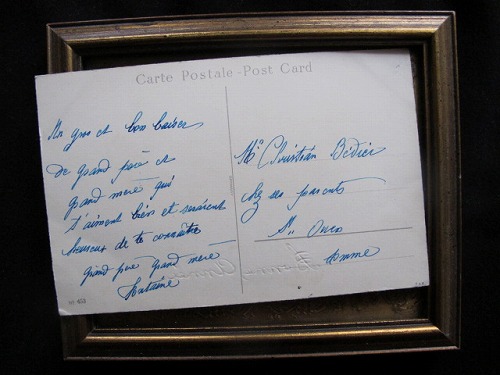 Carte Postale - Post Card
Un gros et bon baiser
de grand père et
grand mère qui
t'aiment bien et seraient
heureux de te connaître
grand père grand mère
Fontaine
Mr Christian Bédier
chez ses parents
St Ouen
Somme